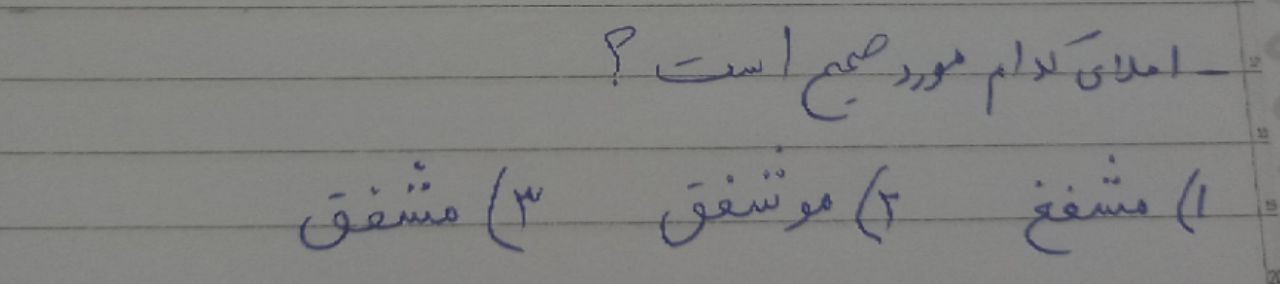 - املای کدام مورد صحیح است ؟
۱) مشفغ ۲) موشفق ۳) مشفق